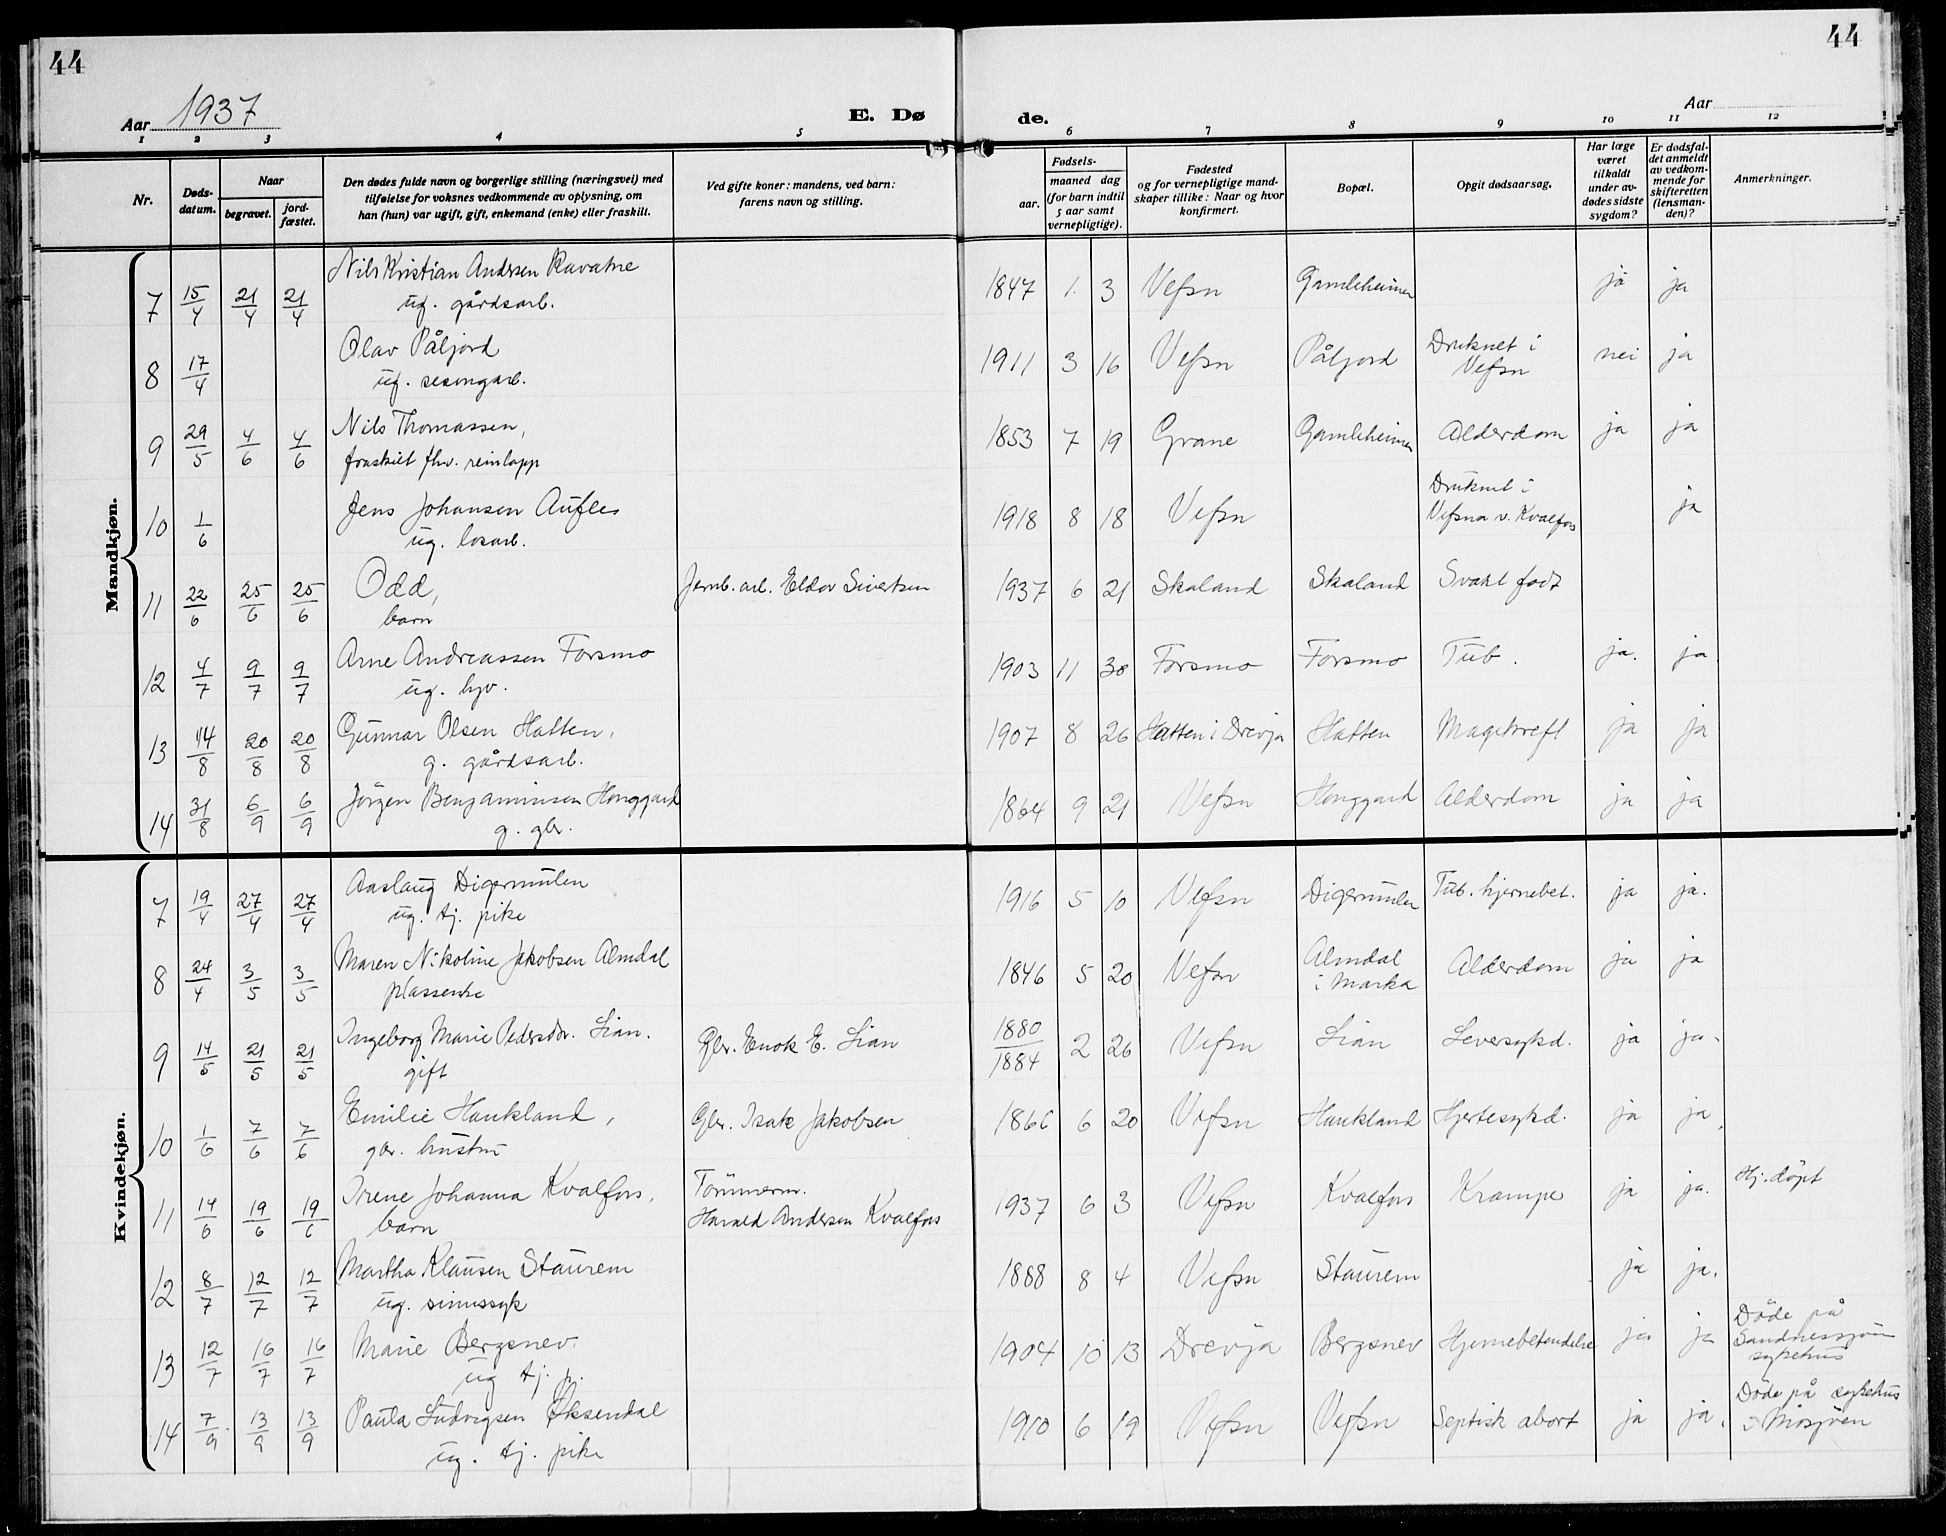 44
44
Aar 1937
E. Dø
de.
Aar
1 2 3 4 5 6 7 8 9 10 11 12
Nr.
Døds-
datum.
Naar
begravet.
jord-
fæstet.
Den dødes fulde navn og borgerlige stilling (næringsvei) med
tilføielse for voksnes vedkommende av oplysning, om
han (hun) var ugift, gift, enkemand (enke) eller fraskilt.
Ved gifte koner: mandens, ved barn:
farens navn og stilling.
Fødsels-
aar.
maaned dag
(for barn indtil
5 aar samt
vernepligtige).
Fødested
og for vernepligtige mand-
skaper tillike: Naar og hvor
konfirmert.
Bopæl.
Opgit dødsaarsag.
Har læge
været
tilkaldt
under av-
dødes sidste
sygdom?
Er dødsfal-
det anmeldt
av vedkom-
mende for
skifteretten
(lensman-
den)?
Anmerkninger.
Mandkjøn.
7 15/4 21/4 21/4 Nils Kristian Andersen Ravatne 1847 1. 3 Vefsn Gamleheimen ja ja
ug. gårdsarb.
8 17/4 Olav Påljord 1911 3 16 Vefsn Påljord Druknet i nei ja
ug. sesongarb. Vefsn
9 29/5 4/6 4/6 Nils Thomassen, 1853 7 19 Grane Gamleheimen Alderdom ja ja
fraskilt fhv. reinlapp
10 1/6 Jens Johansen Aufles 1918 8 18 Vefsn Druknet i ja
ug. losarb. Vefsna v. Kvalfors
11 22/6 25/6 25/6 Odd, Jernb. arb. Eldor Sivertsen 1937 6 21 Skaland Skaland Svakt født
barn
12 4/7 9/7 9/7 Arne Andreassen Forsmo 1903 11 30 Forsmo Forsmo Tub. ja. ja
ug. hjv.
13 14/8 20/8 20/8 Gunnar Olsen Hatten, 1907 8 26 Hatten i Drevja Hatten Magekreft ja ja
g. gårdsarb.
14 31/8 6/9 6/9 Jörgen Benjaminsen Honggard 1864 9 21 Vefsn Honggard Alderdom ja ja
g. gbr.
Kvindekjøn.
7 19/4 27/4 27/4 Aaslaug Digermulen 1916 5 10 Vefsn Digermulen Tub. hjernebet. ja ja.
ug. tj. pike
8 24/4 3/5 3/5 Maren Nikoline Jakobsen Almdal 1846 5 20 Vefsn Almdal Alderdom ja ja
plassenke i Marka
9 14/5 21/5 21/5 Ingeborg Marie Pedersdtr. Lian. Gbr. Enok E. Lian 1880/1884 2 26 Vefsn Lian Leversykd. ja ja.
gift
10 1/6 7/6 7/6 Emilie Haukland, Gbr. Isak Jakobsen 1866 6 20 Vefsn Haukland Hjertesykd. ja ja
gbr. hustru
11 14/6 19/6 19/6 Irene Johanna Kvalfors, Tömmerm. 1937 6 3 Vefsn Kvalfors Krampe ja ja. Hj. döpt
barn Harald Andersen Kvalfors
12 8/7 12/7 12/7 Martha Klausen Staurem 1888 8 4 Vefsn Staurem ja ja.
ug. sinnssyk
13 12/7 16/7 16/7 Marie Bergsnev. 1904 10 13 Drevja Bergsnev Hjernebetendelse ja ja Döde på
ug tj. p. Sandnessjöen
sykehus
14 7/9 13/9 13/9 Paula Ludvigsen Öksendal 1910 6 19 Vefsn Vefsn Septisk abort ja ja. Döde på sykehus
ug. tj. pike i Mosjöen